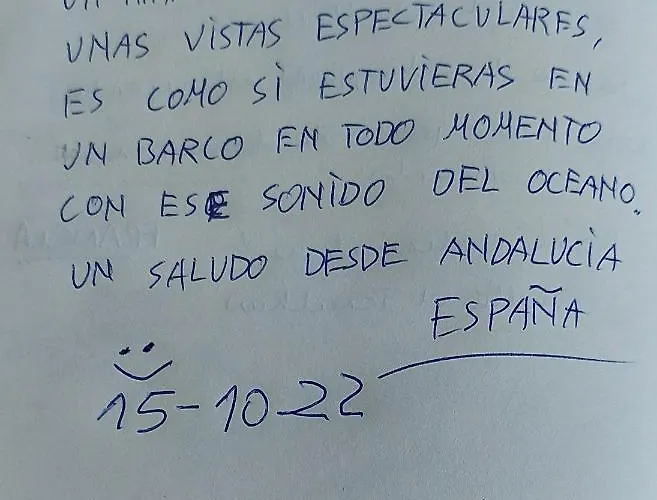 UNAS VISTAS ESPECTACULARES,
ES COMO SI ESTUVIERAS EN
UN BARCO EN TODO MOMENTO
CON ESE SONIDO DEL OCEANO.
UN SALUDO DESDE ANDALUCIA
ESPAÑA
15-10-22